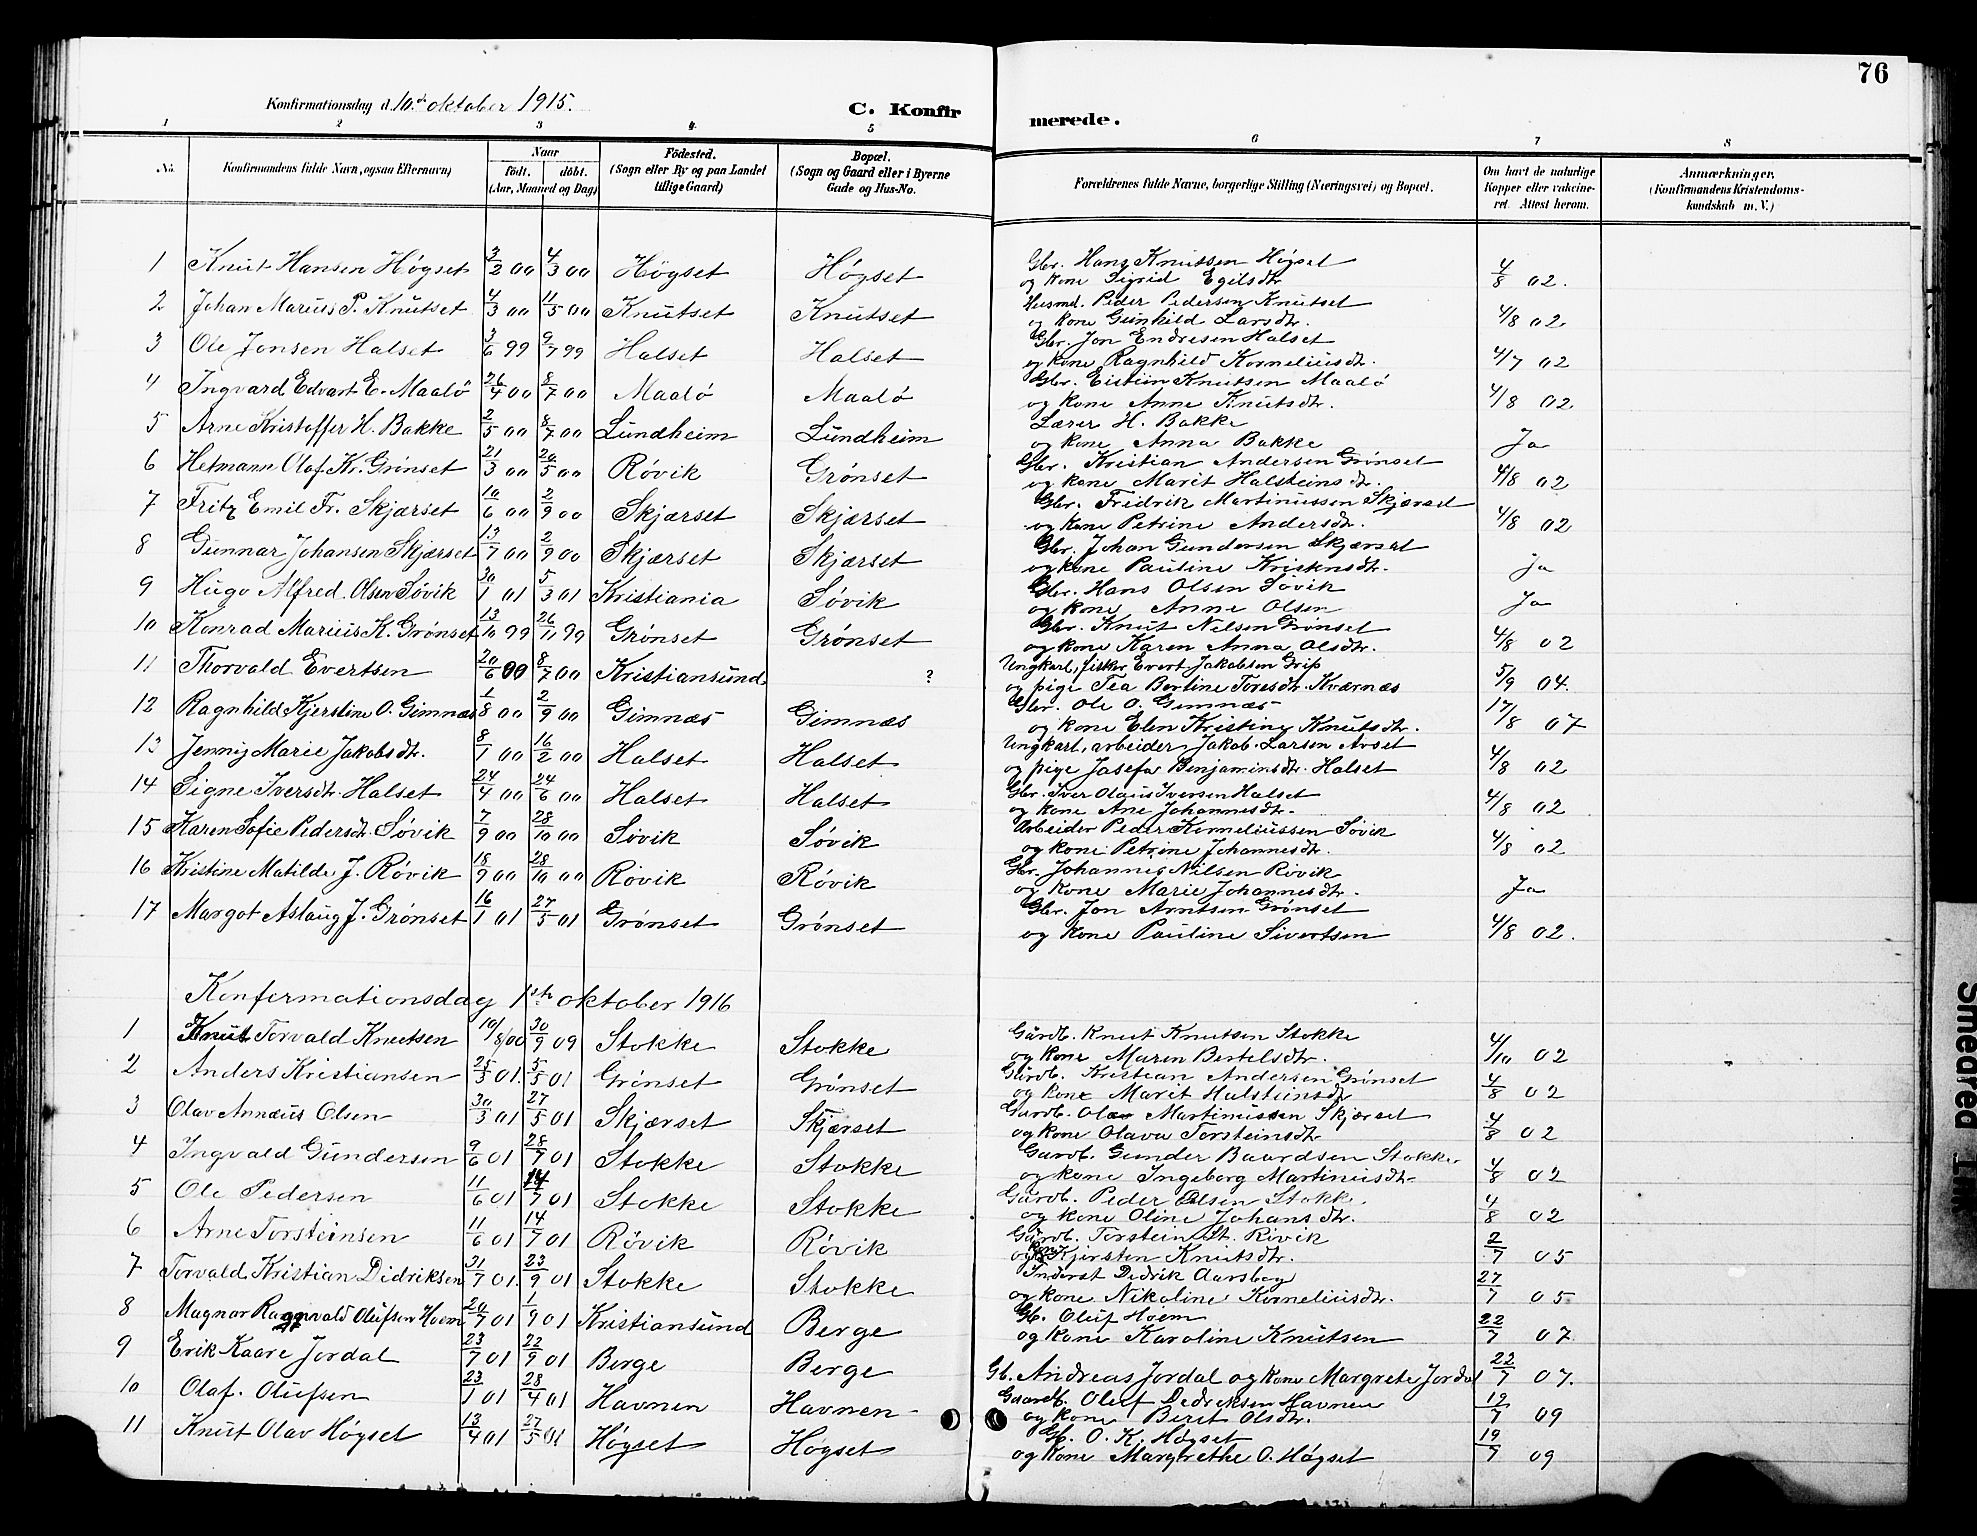 76
Konfirmationsdag d. 10de oktober 1915.
C. Konfirmerede.
1 2 3 4 5 6 7 8
No. Konfirmandens fulde Navn, ogsaa Efternavn) Naar födt. döbt. (Aar, Maaned og Dag) Födested. (Sogn eller By og paa Landet tillige Gaard) Bopæl. (Sogn og Gaard eller i Byerne Gade og Hus-No. Forældrenes fulde Navne, borgerlige Stilling (Næringsvei) og Bopæl. Om havt de naturlige Kopper eller vakcineret. Attest herom. Anmærkninger. (Konfirmandens Kristendomskundskab m. V.)
1 Knut Hansen Högset 3/2 00 4/3 00 Högset Högset Gbr. Hans Knutsen Högset og kone Sigrid Egilsdtr 4/8 02.
2 Johan Marius P. Knutset 4/3 00 11/5 00 Knutset Knutset Husmd. Peder Pedersen Knutset og kone Gunhild Larsdtr. 4/8 02
3 Ole Jonsen Halset 3/6 99 9/7 99 Halset Halset Gbr. Jon Endresen Halset og kone Ragnhild Korneliusdtr. 4/7 02
4 Ingvard Edvart E. Maalö 26/4 00 8/7 00 Maalö Maalö Gbr. Eistein Knutsen Maalö og kone Anne Knutsdtr. 4/8 02
5 Arne Kristoffer H. Bakke 2/5 00 8/7 00 Lundheim Lundheim Lærer H. Bakke og kone Anna Bakke Ja
6 Hermann Olaf Kr. Grönset 21/3 00 20/5 00 Rövik Grönset Gbr. Kristian Andersen Grönset og kone Marit Halsteinsdtr. 4/8 02
7 Fritz Emil Fr. Skjærset 10/6 00 2/9 00 Skjærset Skjærset Gbr. Fridrik Martinussen Skjærset og kone Petrine Andersdtr. 4/8 02
8 Gunnar Johansen Skjærset 13/7 00 2/9 00 Skjærset Skjærset Gbr. Johan Gundersen Skjærset og kone Pauline Kristensdtr. Ja
9 Hugo Alfred Olsen Sövik 30/1 01 5/3 01 Kristiania Sövik Gbr. Hans Olsen Sövik og kone Anne Olsen Ja
10 Konrad Marius K. Grönset 13/10 99 26/11 99 Grönset Grönset Gbr. Knut Nilsen Grönset og kone Karen Anna Olsdtr. 4/8 02
11 Thorvald Evertsen 20/6 00 8/7 00 Kristiansund ? Ungkarl, fisker Evert Jakobsen Grip og pige Tea Bertine Toresdtr. Kværnæs 5/9 04.
12 Ragnhild Kjerstine O. Gimnæs 1/8 00 2/9 00 Gimnæs Gimnæs Gbr. Ole O. Gimnæs og kone Elen Kristiny Knutsdtr. 17/8 07
13 Jenny Marie Jakobsdtr. 8/1 00 16/2 00 Halset Halset Ungkarl, arbeider Jakob Larsen Avset og pige Josefa Benjaminsdtr. Halset 4/8 02
14 Signe Iversdtr. Halset 24/4 00 24/6 00 Halset Halset Gbr. Iver Olaus Iversen Halset og kone Ane Johannesdtr. 4/8 02
15 Karen Sofie Pedersdtr. Sövik 7/9 00 28/10 00 Sövik Sövik Arbeider Peder Korneliussen Sövik og kone Petrine Johannesdtr. 4/8 02
16 Kristine Matilde J. Rövik 18/9 00 28/10 00 Rövik Rövik Gbr. Johannes Nilsen Rövik og kone Marie Johannesdtr. Ja
17 Margot Aslaug J. Grönset 16/1 01 27/5 01 Grönset Grönset Gbr. Jon Arntsen Grönset og kone Pauline Sivertsen 4/8 02.
Konfermationsdag 1ste oktober 1916
1 Knut Torvald Knutsen 10/8/00 30/9 09 Stokke Stokke Gårdb. Knut Knutsen Stokke og kone Maren Bertelsdtr. 4/10 02
2 Anders Kristiansen 25/3 01. 5/5 01 Grönset Grönset Gårdb. Kristian Andersen Grönset og kone Marit Halsteinsdtr 4/8 02
3 Olav Annæus Olsen 30/3 01 27/5 01 Skjærset Skjærset Gårdb. Ola Martinussen Skjærset og kone Olava Torsteinsdtr 4/8 02
4 Ingvald Gundersen 9/6 01 28/7 01 Stokke Stokke Gårdb. Gunder Baardsen Stokke og kone Ingeborg Martinusdtr. 4/8 02
5 Ole Pedersen 11/6 01 14/7 01 Stokke Stokke Gårdb. Peder Olsen Stokke. og kone Oline Johansdtr. 4/8 02
6 Arne Torsteinsen 11/6 01 14/7 01 Rövik Rövik Gårdb. Torstein St. Rövik og kone Kjersten Knutsdtr. 2/7 05
7 Torvald Kristian Didriksen 31/7 01. 23/9 01 Stokke Stokke Inderst Didrik Aarsbog og kone Nikoline Korneliusdtr. 27/7 05
8 Magnar Ragnvald Olufsen Hoem 20/7 01 1/9 01 Kristiansund Berge Gb. Oluf Hoem og kone Karoline Knutsen 22/7 07
9 Erik Kaare Jordal 23/7 01 22/9 01 Berge Berge Gb. Andreas Jordal og kone Margrete Jordal 22/7 07.
10 Olaf. Olufsen 23/1 01 28/4 01 Havnen Havnen Gaardb. Oluf Dedreksen Havnen og kone Beret Olsdtr. 12/7 09
11 Knut Olav Högset 13/4 01 27/5 01 Högset Högset Gb. O. K. Högset og kone Margrethe O. Högset 19/7 09
Smeared Ink